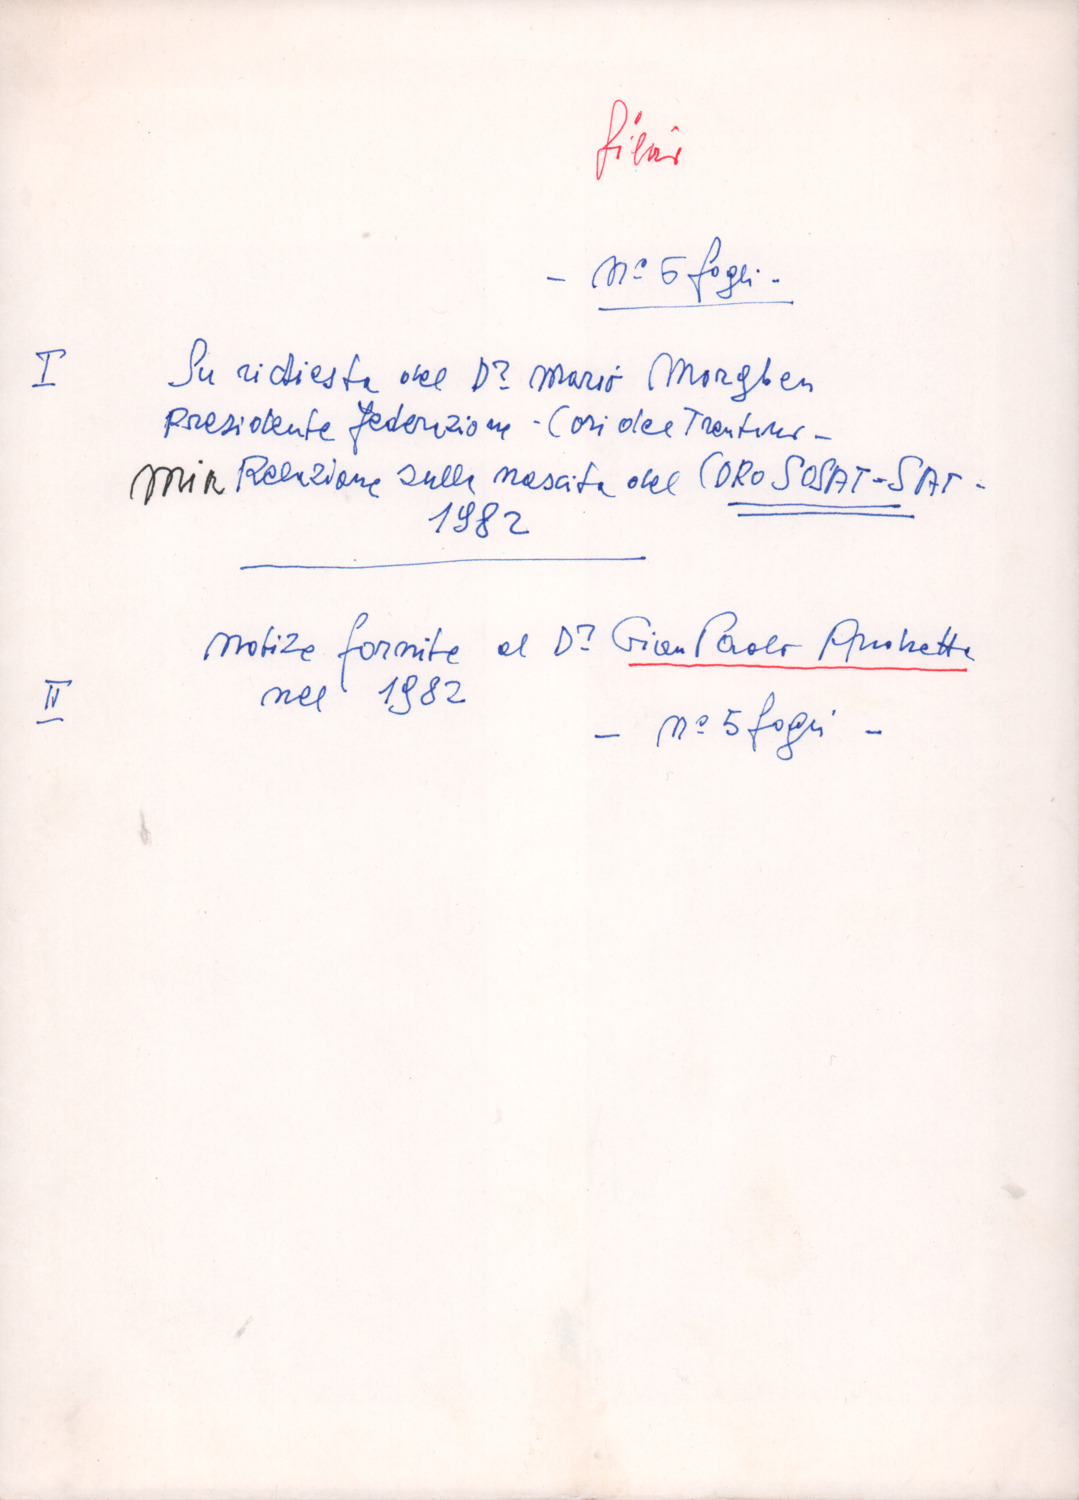 - n° 5 fogli -
I Su richiesta del D? Mario Morghen
Presidente Federazione - Cori del Trentino -
mia Relazione sulla nascita del CORO SOSAT - SAT -
1982
notizie fornite al D? Gian Paolo
II nel 1982
- n° 5 fogli -